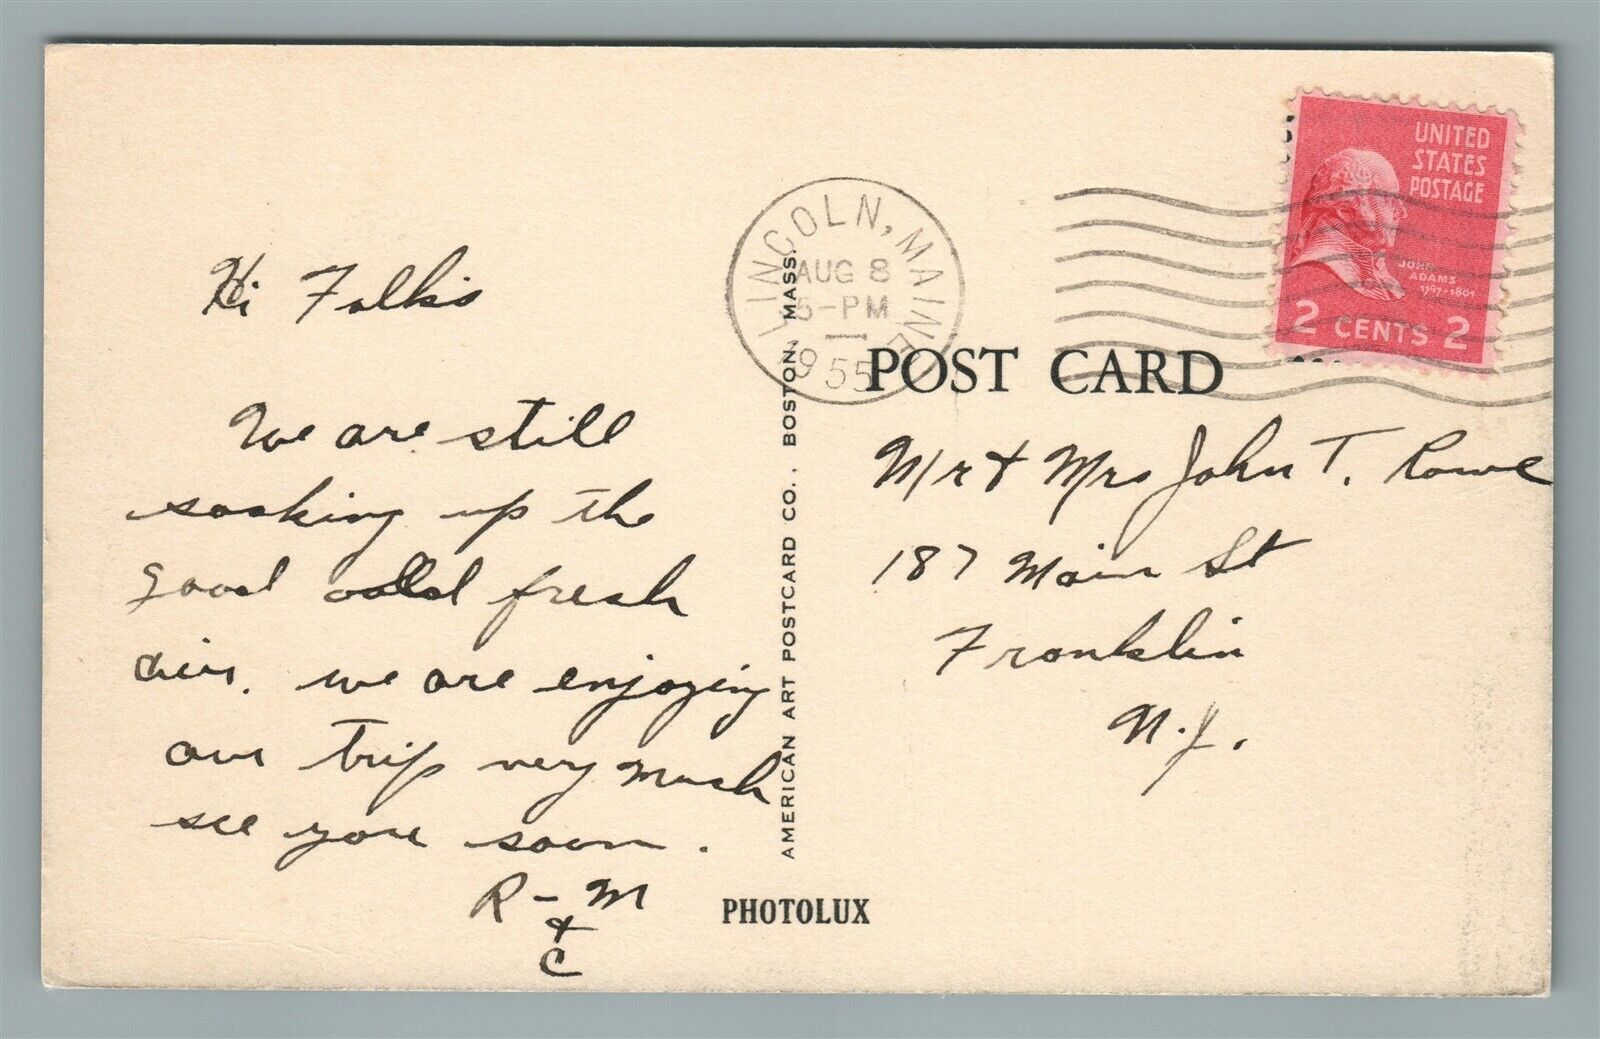 Hi Folks
We are still
soaking up the
good old fresh
air. we are enjoying
our trip very much
see you soon.
R - M
&
C
LINCOLN, MAINE
AUG 8
5-PM
1955
AMERICAN ART POSTCARD CO., BOSTON, MASS.
PHOTOLUX
UNITED
STATES
POSTAGE
JOHN
ADAMS
1797-1801
2 CENTS 2
POST CARD
Mr & Mrs John T. Rowe
187 Main St
Franklin
N.J.